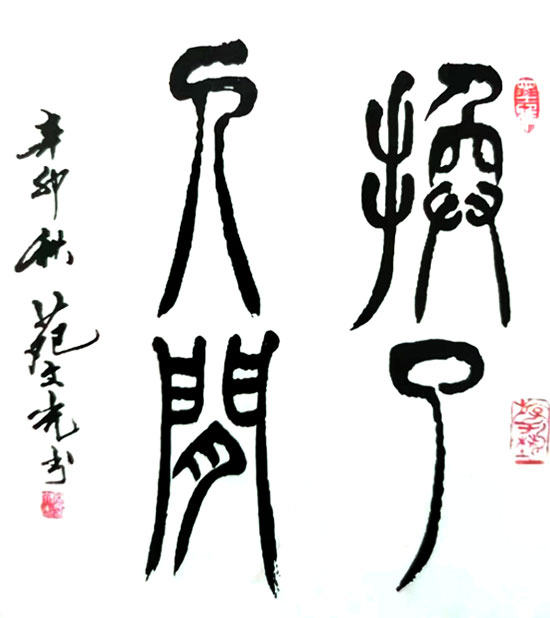 換了
人間
辛卯秋 范文光书